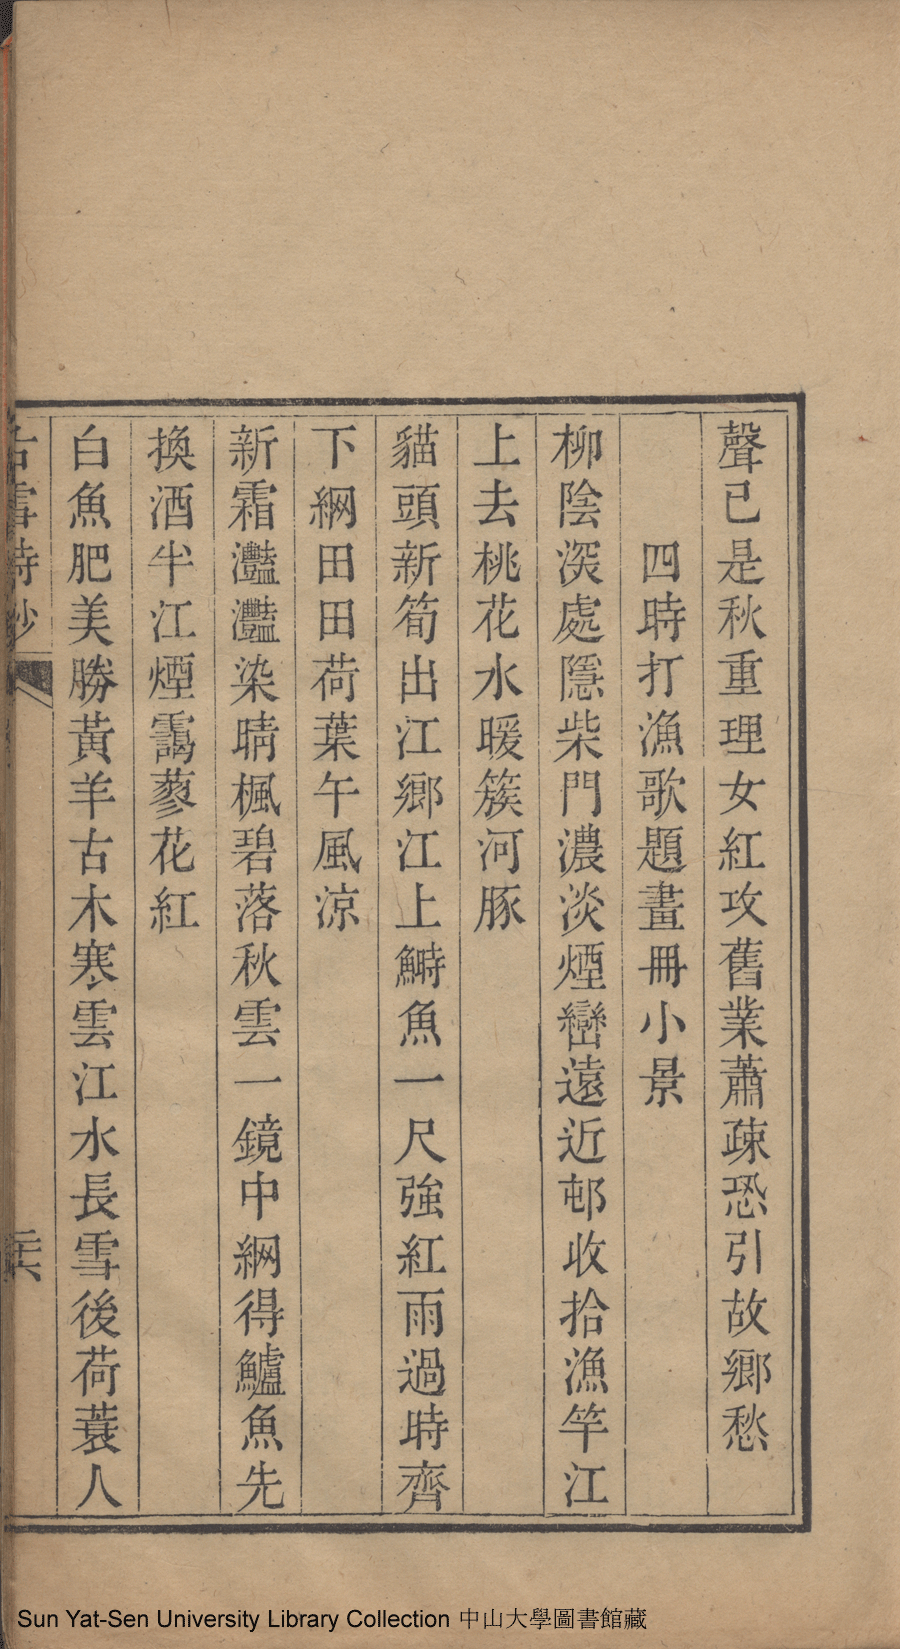 聲已是秋重理女紅攻舊業蕭疎恐引故鄉愁
四時打漁歌題畫冊小景
柳陰深處隱柴門濃淡煙巒遠近邨收拾漁竿江
上去桃花水暖簇河豚
貓頭新筍出江鄉江上鰣魚一尺強紅雨過時齊
下網田田荷葉午風涼
新霜灩灩染晴楓碧落秋雲一鏡中網得鱸魚先
換酒半江煙靄蓼花紅
白魚肥美勝黃羊古木寒雲江水長雪後荷蓑人
古雪詩鈔
Sun Yat-Sen University Library Collection 中山大學圖書館藏